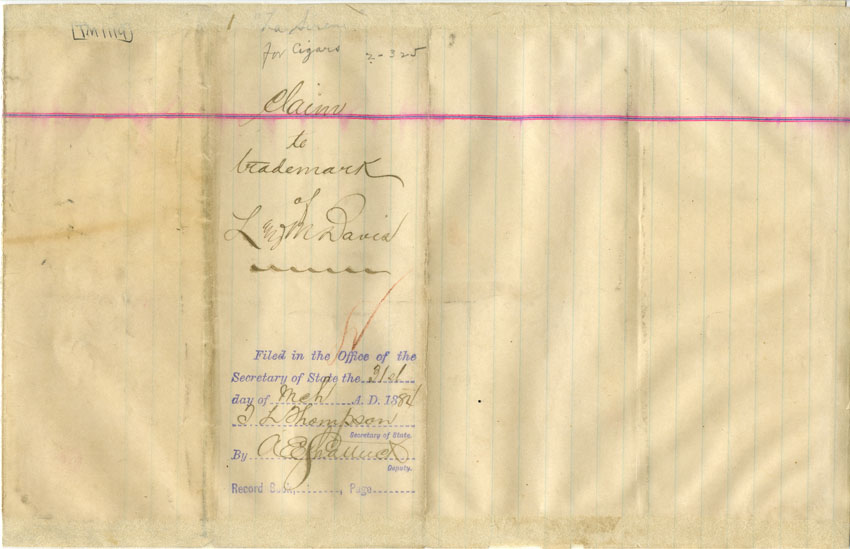 TM 1119
for Cigars 2-325
Claim
to
trademark
of
L & M Davis
Filed in the Office of the
Secretary of State the 31st
day of Mch A. D. 188
T L Thompson
Secretary of State.
By A E
Deputy.
Record Book, , Page